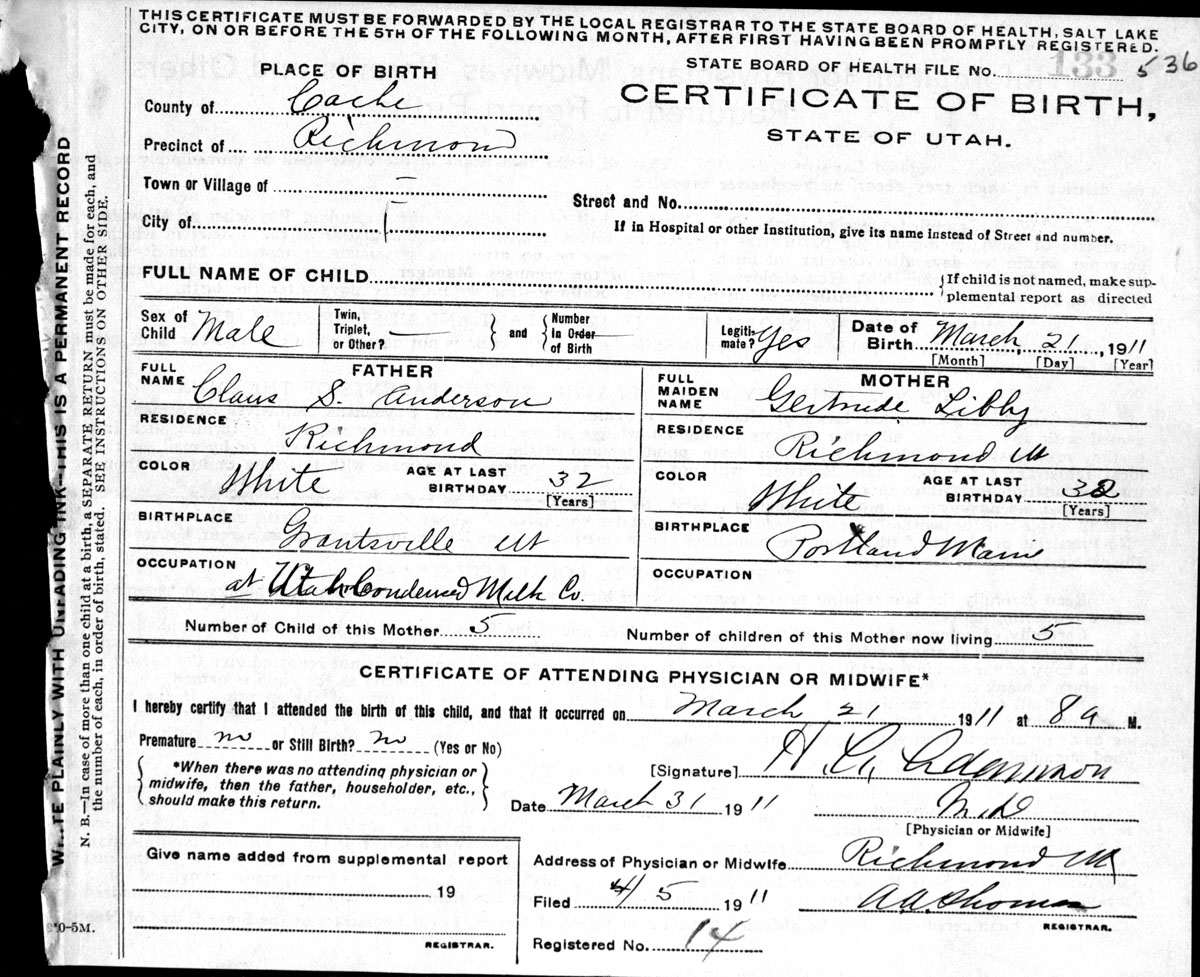 THIS CERTIFICATE MUST BE FORWARDED BY THE LOCAL REGISTRAR TO THE STATE BOARD OF HEALTH, SALT LAKE
CITY, ON OR BEFORE THE 5TH OF THE FOLLOWING MONTH, AFTER FIRST HAVING BEEN PROMPTLY REGISTERED.
STATE BOARD OF HEALTH FILE No. 133 536
PLACE OF BIRTH
CERTIFICATE OF BIRTH,
STATE OF UTAH.
County of Cache
Precinct of Richmond
Town or Village of –
City of
Street and No.
If in Hospital or other Institution, give its name instead of Street and number.
FULL NAME OF CHILD
If child is not named, make sup-
plemental report as directed
Sex of Child Male
Twin, Triplet, or Other? —
and
Number in Order of Birth
Legiti-mate? Yes
Date of Birth March 21, 1911
[Month] [Day] [Year]
FATHER
FULL NAME Claus S. Anderson
RESIDENCE Richmond
COLOR White AGE AT LAST BIRTHDAY 32 [Years]
BIRTHPLACE Grantsville Ut
OCCUPATION at Utah Condensed Milk Co.
MOTHER
FULL MAIDEN NAME Gertrude Libby
RESIDENCE Richmond Ut
COLOR White AGE AT LAST BIRTHDAY [Years]
BIRTHPLACE Portland Maine
OCCUPATION
Number of Child of this Mother 5 Number of children of this Mother now living 5
CERTIFICATE OF ATTENDING PHYSICIAN OR MIDWIFE*
I hereby certify that I attended the birth of this child, and that it occurred on March 21 1911 at 8 a M.
Premature no or Still Birth? no (Yes or No)
*When there was no attending physician or
midwife, then the father, householder, etc.,
should make this return.
[Signature] Adamson
Date March 31 1911 M.D
[Physician or Midwife]
Give name added from supplemental report
19
REGISTRAR.
Address of Physician or Midwife Richmond Ut
Filed 4/5 1911 Thomas
REGISTRAR.
Registered No. 14
WRITE PLAINLY WITH UNFADING INK—THIS IS A PERMANENT RECORD
N. B.—In case of more than one child at a birth, a SEPARATE RETURN must be made for each, and
the number of each, in order of birth, stated. SEE INSTRUCTIONS ON OTHER SIDE.
0-5M.